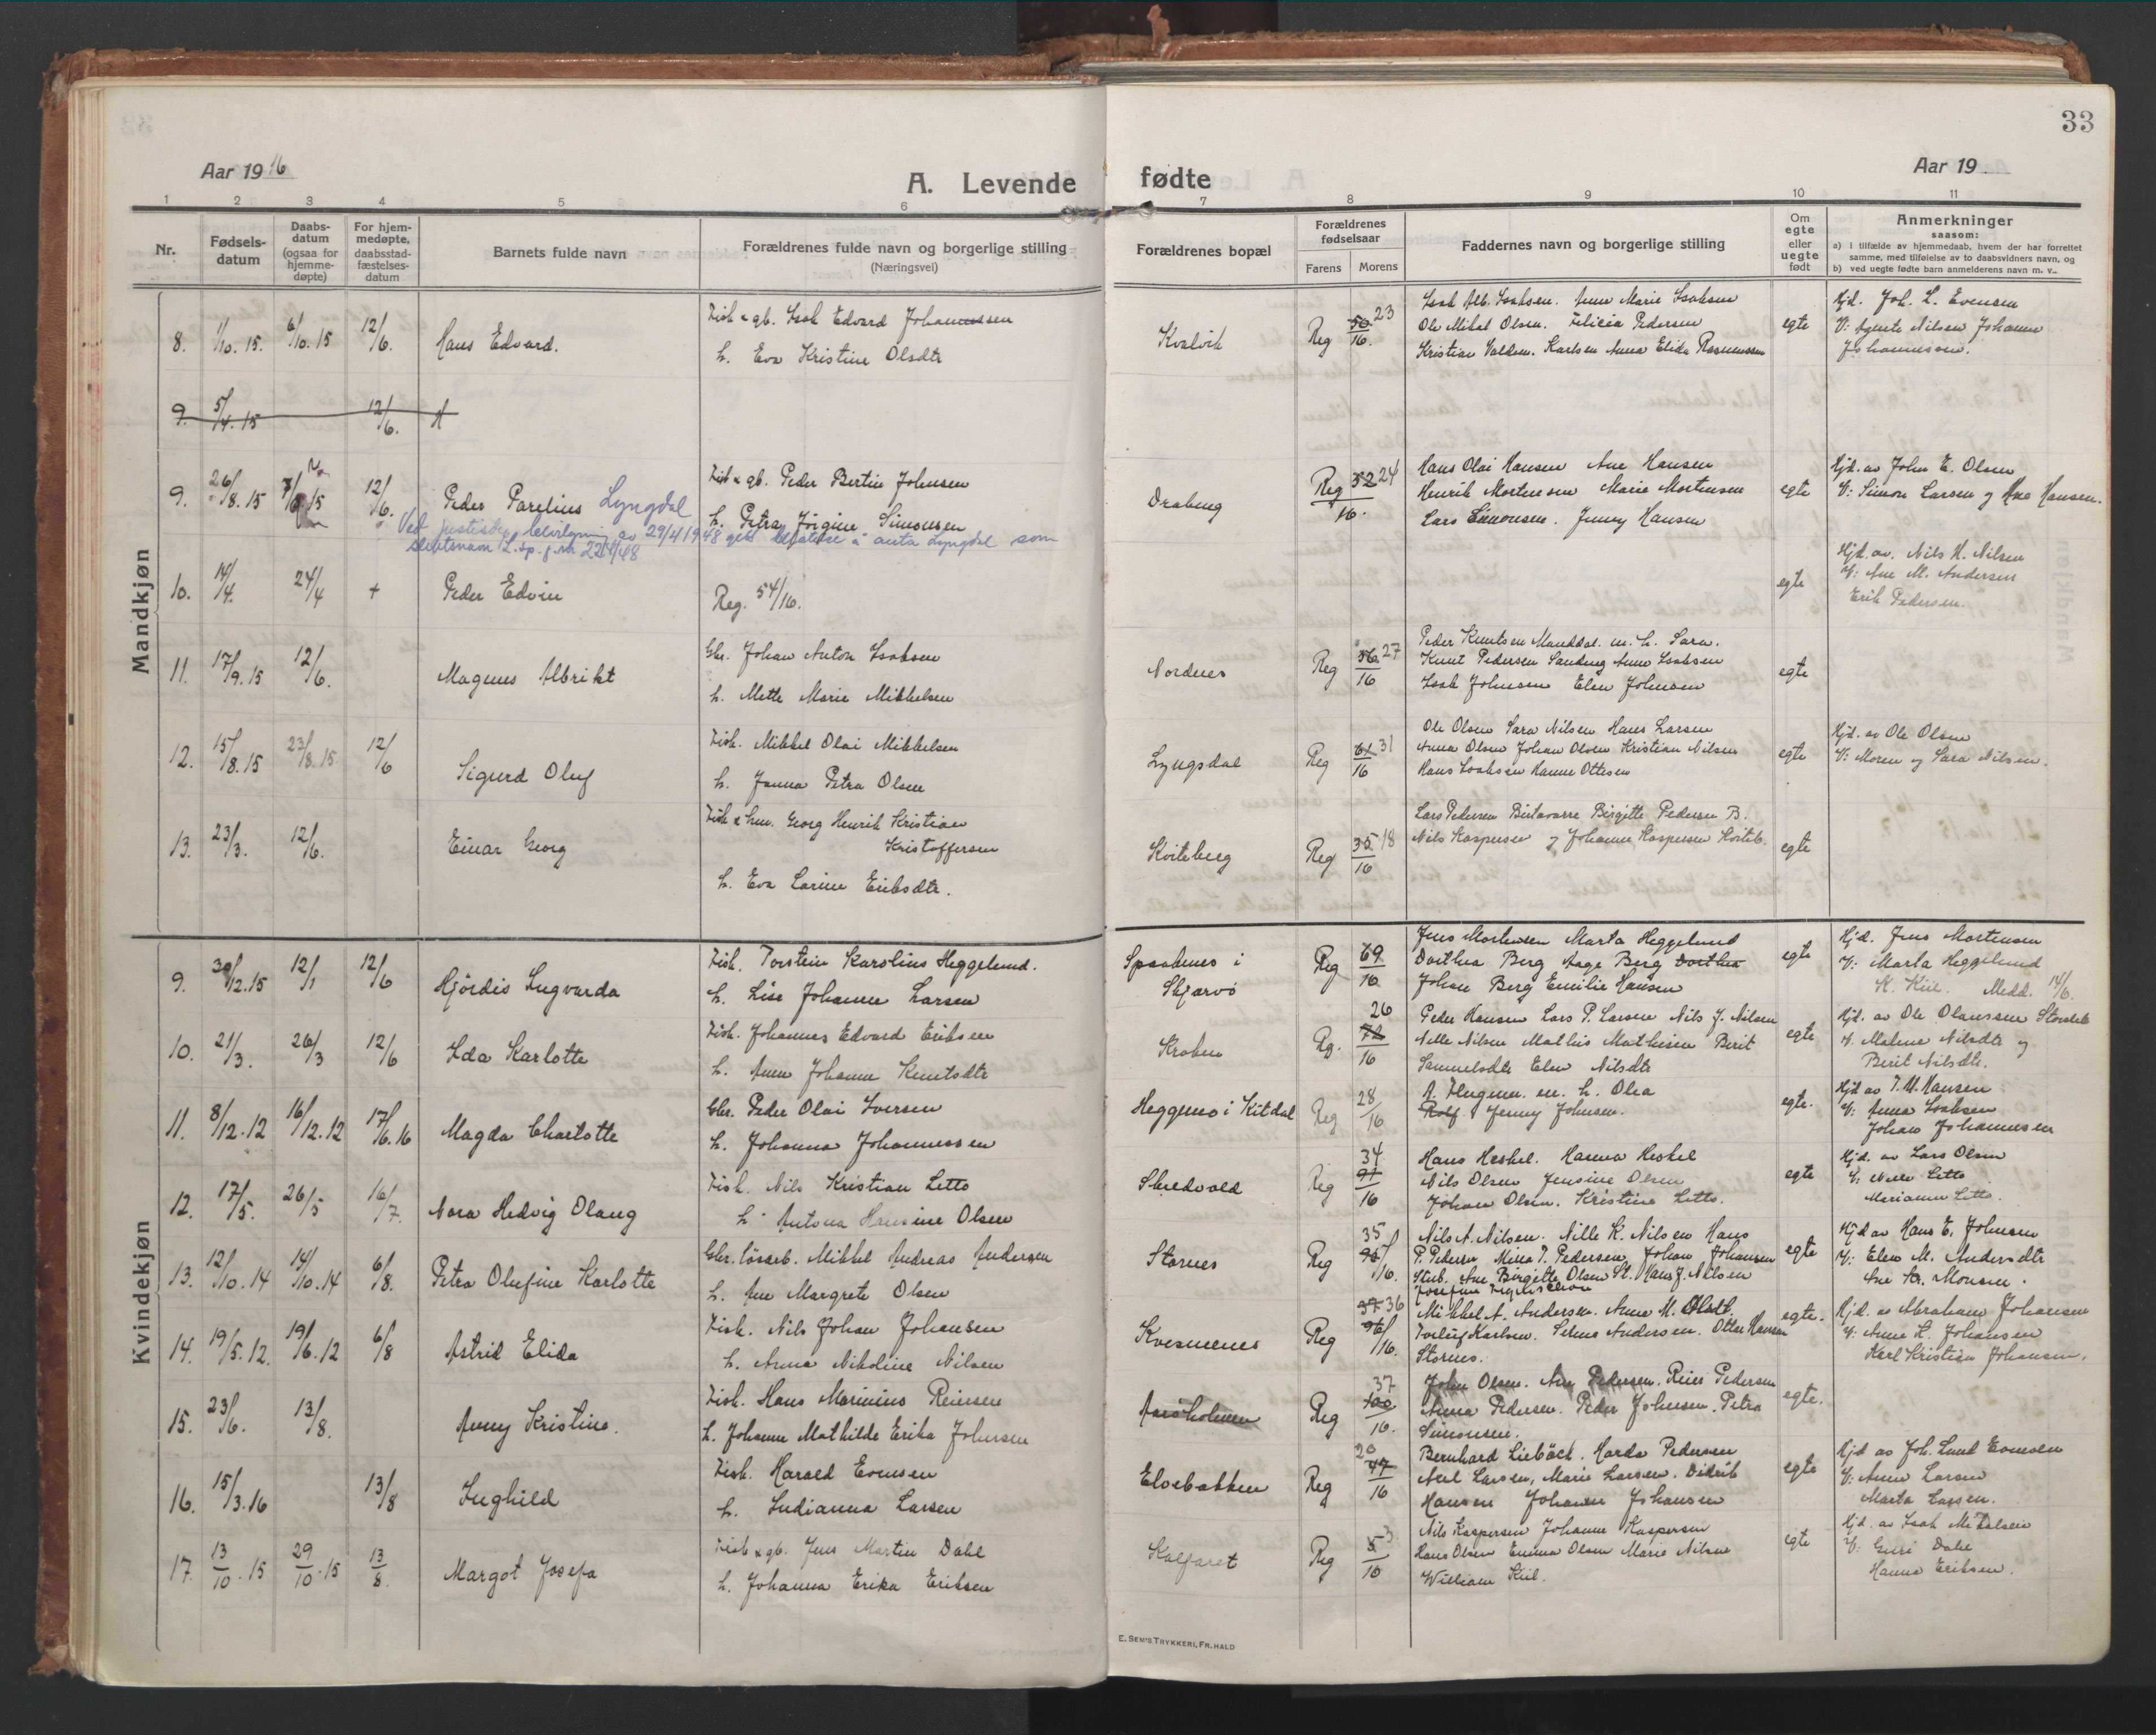 33
Aar 1916
A. Levende fødte
Aar 19
1 2 3 4 5 6 7 8 9 10 11
Nr.
Fødsels-
datum
Daabs-
datum
(ogsaa for
hjemme-
døpte)
For hjem-
medøpte,
daabsstad-
fæstelses-
datum
Barnets fulde navn
Forældrenes fulde navn og borgerlige stilling
(Næringsvei)
Forældrenes bopæl
Forældrenes
fødselsaar
Farens Morens
Faddernes navn og borgerlige stilling
Om
egte
eller
uegte
født
Anmerkninger
saasom:
a) i tilfælde av hjemmedaab, hvem der har forrettet
samme, med tilføielse av to daabsvidners navn, og
b) ved uegte fødte barn anmelderens navn m. v..
Mandkjøn
8. 1/10. 15. 6/10. 15 12/6. Hans Edvard.
Fisk & gb. Isak Edvard Johannessen
h. Eva Kristine Olsdtr
Kvalvik Reg 50 23/16.
Isak Alb. Isaksen. Anne Marie Isaksen
Ole Mikal Olsen. Felicia Pedersen
Kristian Valdem. Karlsen Anna Elida Rasmussen
egte
Hjd. Joh. L. Evensen
V: Agnete Nilsen Johanne
Johannessen.
9. 5/4. 15 12/6. A
9. 26/8. 15 12/6. Peder Parelius Lyngdal
Fisk & gb. Peder Bertin Johnsen
h. Petra Jørgine Simonsen
Ved justisdep. bevilgning av 29/4 1948 gitt tillatelse å anta Lyngdal som
slektsnavn
Drabeng Reg 52 24/16.
Hans Olai Hansen Ane Hansen
Henrik Mortensen Marie Mortensen
Lars Simonsen. Jenny Hansen
egte
Hjd. av John E. Olsen
V: Simon Larsen og Ane Hansen.
10. 14/4. 24/4 + Peder Edvin
Reg. 54/16.
egte
Hjd. av. Nils H. Nilsen
V: Ane M. Andersen
Erik Pedersen.
11. 17/9. 15 12/6. Magnus Albrikt
Gbr. Johan Anton Isaksen
h. Mette Marie Mikkelsen
Nordnes Reg 56 27/16
Peder Knutsen Manddal. m. h. Sara.
Knut Pedersen Sandeng Anne Isaksen
Isak Johnsen Elen Johnsen
egte
12. 15/8. 15 23/8. 15 12/6 Sigurd Oluf
Fisk. Mikkel Olai Mikkelsen
h. Janna Petra Olsen
Lyngsdal Reg 61 31/16
Ole Olsen Sara Nilsen Hans Larsen
Anna Olsen Johan Olsen Kristian Nilsen
Hans Isaksen Hanne Ottesen
egte
Hjd. av Ole Olsen
V: Moren og Sara Nilsen.
13. 23/3. 12/6. Einar Georg
Fisk & hm. Georg Henrik Kristian
Kristoffersen
h. Eva Larine Eriksdtr.
Kviteberg Reg 35 18/16
Lars Pedersen Birtavarre Birgitte Pedersen B.
Nils Kaspersen og Johanne Kaspersen Kviteb.
egte
Kvindekjøn
9. 30/12. 15 12/1 12/6 Hjördis Ingvarda
Fisk. Torstein Karolius Heggelund.
h. Lise Johanne Larsen
i
Skjærvö Reg 69/16
Jens Mortensen Marta Heggelund
Dorthea Berg Aage Berg Dorthea
Johan Berg Emilie Hansen
egte
Hjd. Jens Mortensen
V: Marta Heggelund
K. Kiil. Medd. 14/6.
10. 21/3. 26/3 12/6 Ida Karlotte
Fisk. Johannes Edvard Eriksen
h. Anne Johanne Knutsdtr
Kroken Rg. 26 72/16
Peder Hansen Lars P. Larsen Nils J. Nilsen
Nille Nilsen Mathis Mathisen Berit
Samuelsdtr Elen Nilsdtr
egte
Hjd. av Ole Olaussen
V. Malene Nilsdtr og
Berit Nilsdtr.
11. 8/12. 12 16/12. 12 17/6. 16 Magda Charlotte
Gbr. Peder Olai Iversen
h. Johanna Johannessen
Heggemo i Kitdal Reg 28/16
m. h. Olea
Rolf & Jenny Johnsen.
egte.
Hjd av T. M. Hansen
V: Anna Isaksen
Johan Johannesen
12. 17/5. 26/5 16/7. Nora Hedvig Olaug
Fisk. Nils Kristian Letto
h. Antona Hansine Olsen
Skredvold Reg 34 91/16
Hans Heskel. Hanna Heskel
Nils Olsen Jensine Olsen
Johan Olsen. Kristine Letto.
egte
Hjd. av Lars Olsen
V: Letto
Marianne Letto.
13. 12/10. 14 14/10. 14 6/8. Petra Olufine Karlotte
Gbr. lösarb. Mikkel Andreas Andersen
h. Ane Margrete Olsen
Stornes Reg 35 95/16.
Nils A. Nilsen. Nille K. Nilsen Hans
P. Pedersen Mina J. Pedersen Johan Johansen
Stub. Ane Birgitte Olsen St. Hans J. Nilsen
egte
Hjd av Hans E. Johnsen
V: Elen M. Andersdtr
Ane Kr. Monsen.
14. 19/5. 12. 19/6. 12 6/8 Astrid Elida
Fisk. Nils Johan Johansen
h. Anna Nikoline Nilsen
Kvesmenes Reg 37 36 96/16.
Mikkel A. Andersen. Anne M. Olsdt.
Torleif Karlsen. Selma Andersen. Ottar Hansen
Stornes.
egte.
Hjd. av Abraham Johansen
V: Anne K. Johansen
Karl Kristian Johansen.
15. 23/6. 13/8. Anny Kristine.
Fisk. Hans Marinius Reiersen
h. Johanne Mathilde Erika Johnsen
Aaröholmen Reg 37 100/16.
John Olsen. Ane Pedersen. Reier Pedersen
Anna Pedersen. Peder Johnsen. Petra
Simonsen.
egte.
16. 15/3. 16 13/8 Inghild
Fisk. Harald Evensen
h. Indianna Larsen
Elvebakken Reg 20 47/16
Bernhard Liebäck. Marda Pedersen
Larsen, Marie Larsen. Didrik
Hansen Johanne Johansen
egte
Hjd av Joh. Lund Evensen
V: Anne Larsen
Marta Larsen.
17. 13/10. 15 29/10. 15 13/8. Margot Josefa
Fisk & gb. Jens Martin Dahl
h. Johanna Erika Eriksen
Kalfaret Reg 5 3/16
Nils Kaspersen Johanne Kaspersen
Hans Olsen Emma Olsen Marie Nilsen
William Kiil.
egte
Hjd. av Isak Mikalsen
V: Guri Dahl
Hanna Eriksen.
E. SEM'S TRYKKERI, FR.HALD